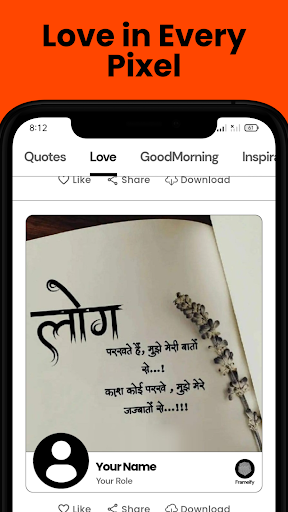 Love in Every
Pixel
8:12
67
Quotes
Love
GoodMorning
Inspira
Like
Share
Download
लोग
परखते हैं, मुझे मेरी बातों
से...!
काश कोई परखे , मुझे मेरे
जज्बातों से...!!!
Your Name
Your Role
Frameify
Like
Share
Download